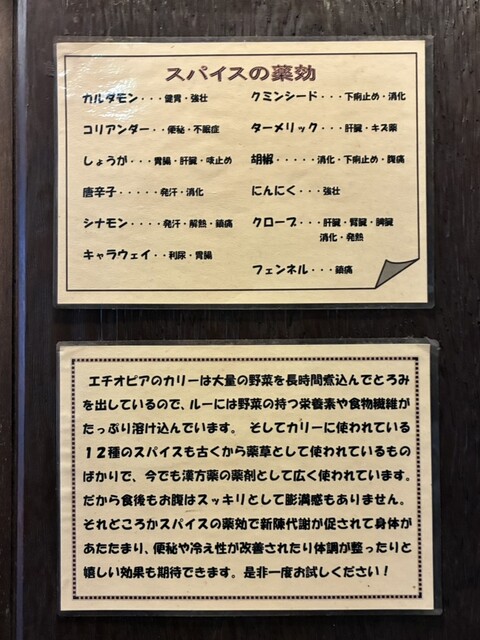 スパイスの薬効
カルダモン・・・健胃・強壮
コリアンダー・・便秘・不眠症
しょうが・・・胃腸・肝臓・咳止め
唐辛子・・・・・発汗・消化
シナモン・・・・発汗・解熱・鎮痛
キャラウェイ・・利尿・胃腸
クミンシード・・・下痢止め・消化
ターメリック・・・肝臓・キズ薬
胡椒・・・・・消化・下痢止め・腹痛
にんにく・・・強壮
クローブ・・・肝臓・腎臓・脾臓
消化・発熱
フェンネル・・・鎮痛
エチオピアのカリーは大量の野菜を長時間煮込んでとろみ
を出しているので、ルーには野菜の持つ栄養素や食物繊維が
たっぷり溶け込んでいます。そしてカリーに使われている
１２種のスパイスも古くから薬草として使われているもの
ばかりで、今でも漢方薬の薬剤として広く使われています。
だから食後もお腹はスッキリとして膨満感もありません。
それどころかスパイスの薬効で新陳代謝が促されて身体が
あたたまり、便秘や冷え性が改善されたり体調が整ったりと
嬉しい効果も期待できます。是非一度お試しください！